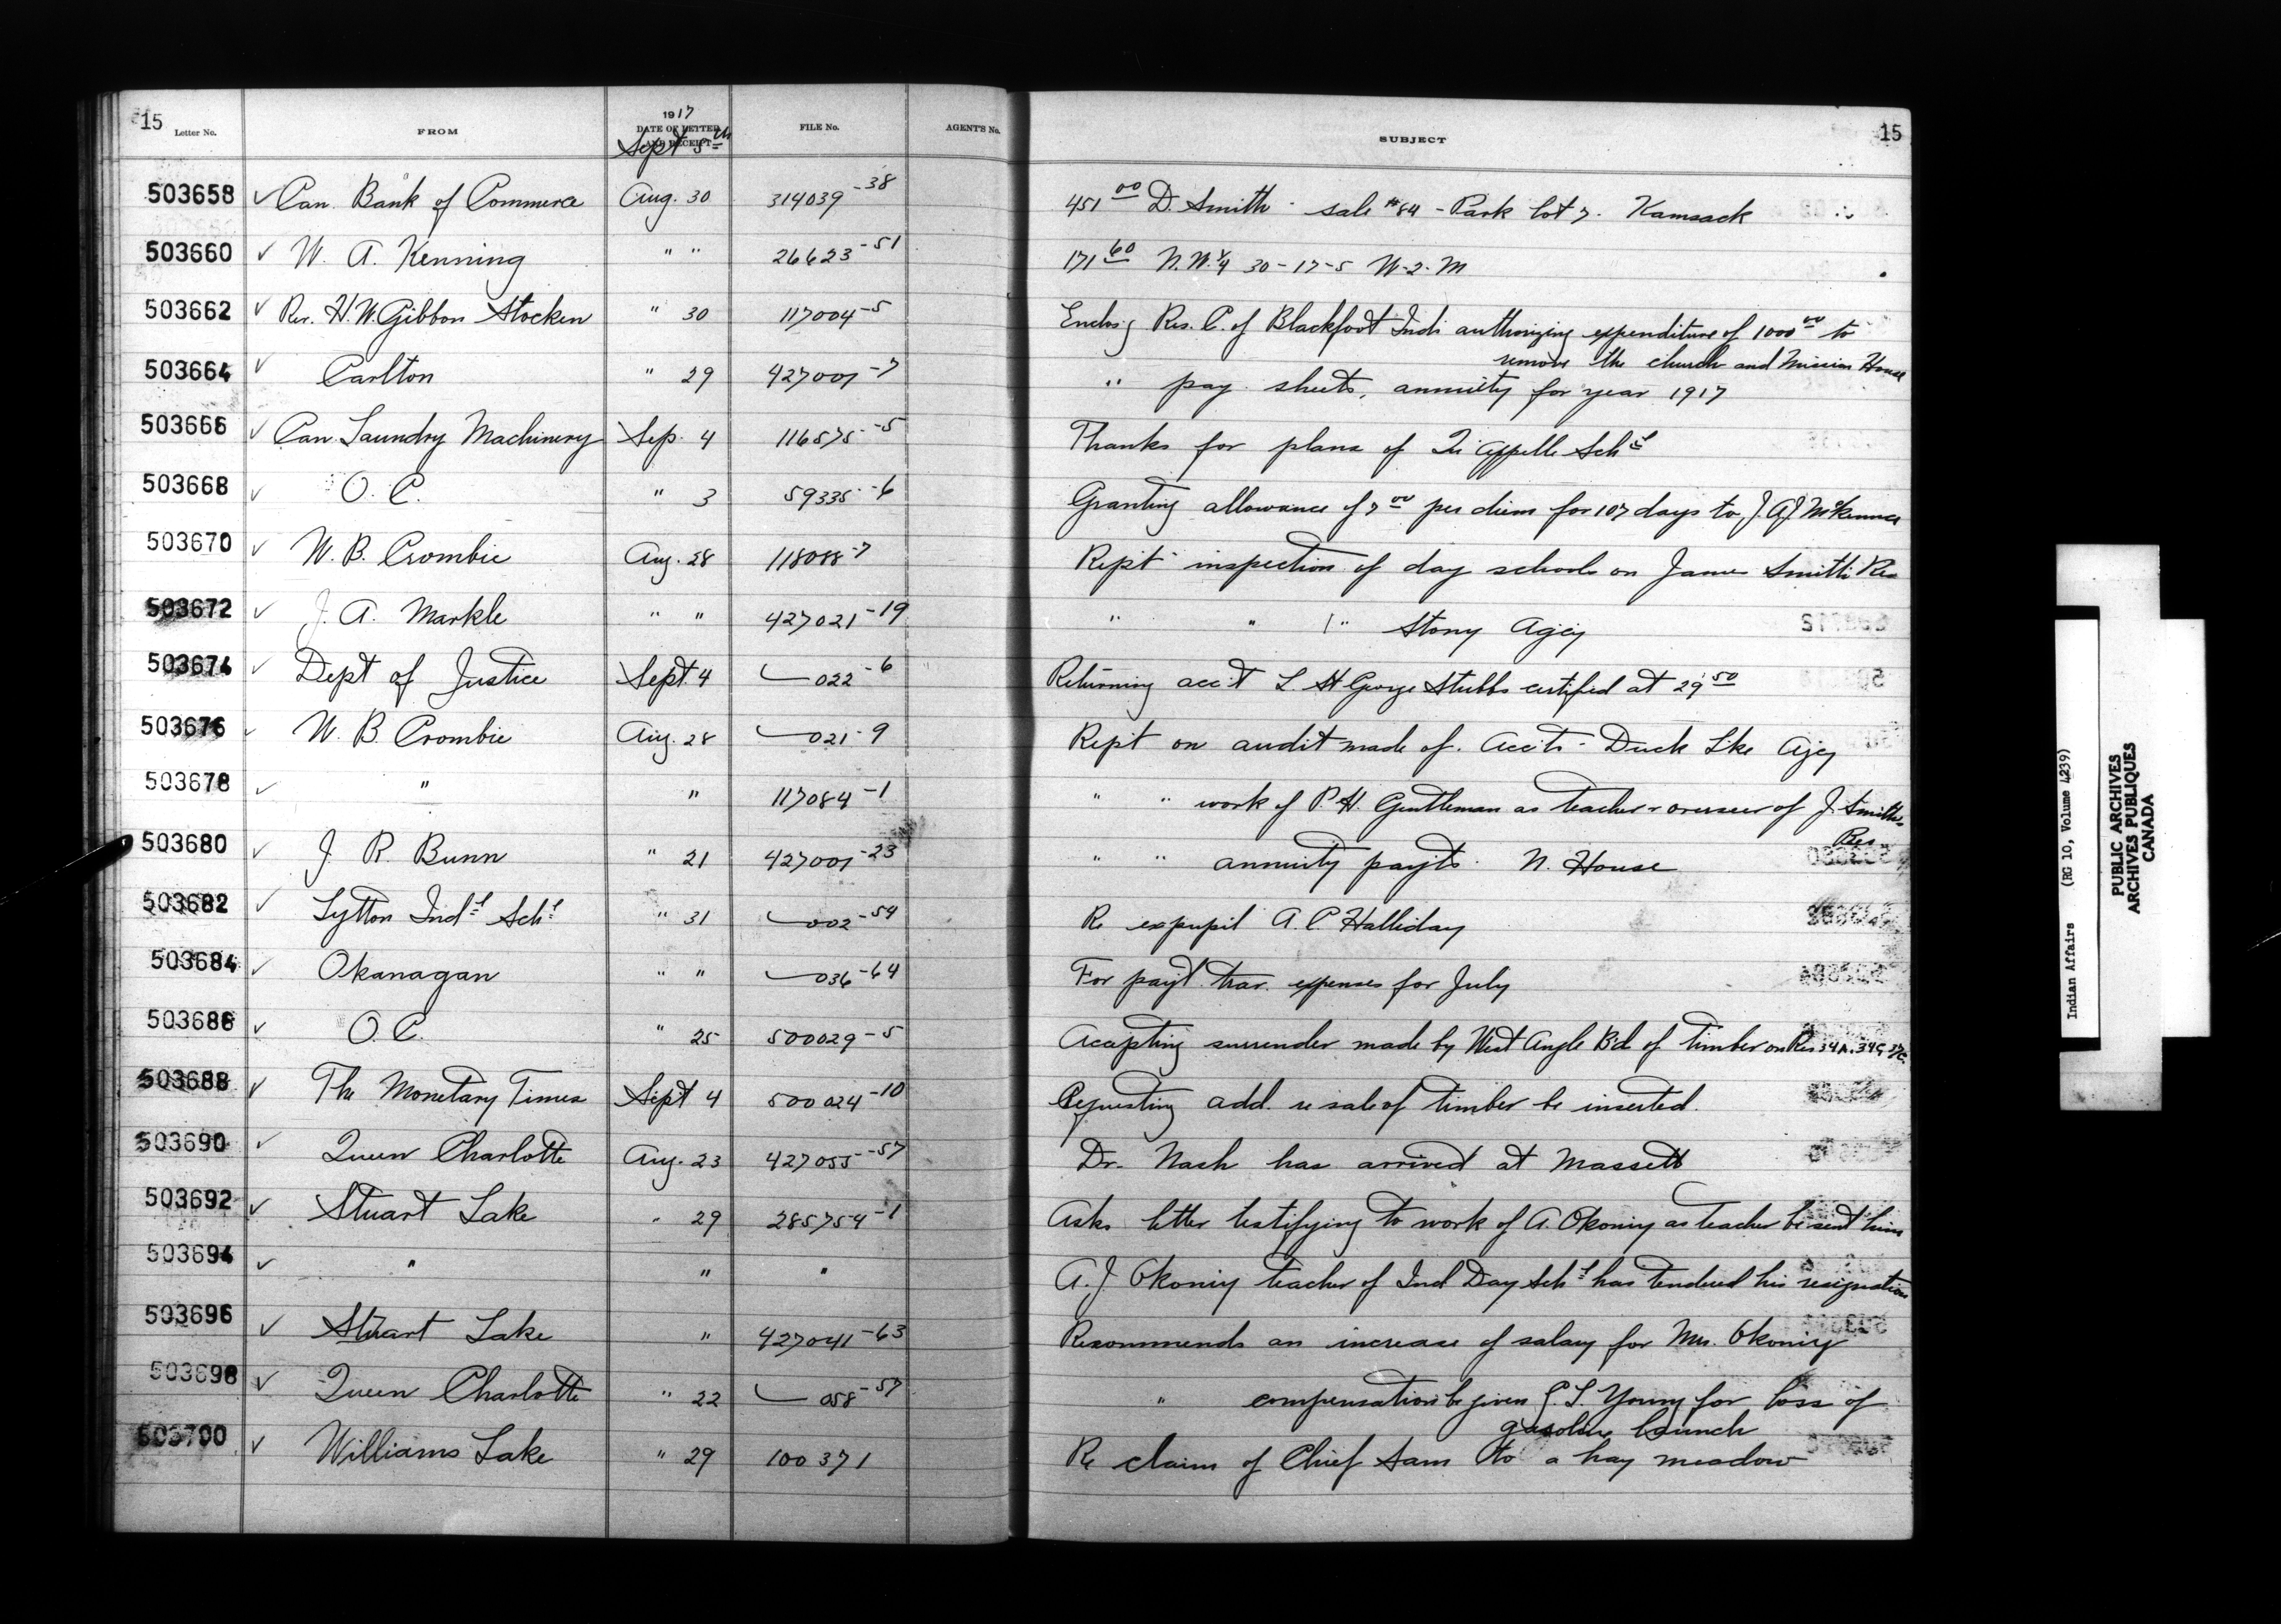 15 Letter No. FROM 1917 DATE OF LETTER AND RECEIPT FILE No. AGENT'S No. SUBJECT 15
Sept 5th
503658 ✓ Can. Bank of Commerce Aug. 30 314039-38 451 00 D. Smith - sale #84 - Park lot 7. Kamsack
503660 ✓ W. A. Kenning " " 26623-51 171 60 N.W. 1/4 30-17-5 W-2-M
503662 ✓ Rev. H.W. Gibbon Stocken " 30 117004-5 Enclosg Res. C. of Blackfoot Inds authorizing expenditure of 1000 00 to
remove the church and Mission House
503664 ✓ Carlton " 29 427001-7 " pay sheets, annuity for year 1917
503666 ✓ Can. Laundry Machinery Sep. 4 116575-5 Thanks for plans of Qu'appelle Schl
503668 ✓ O. C. " 3 59335-6 Granting allowance of 7 00 per diem for 107 days to J. A. J. McKenna
503670 ✓ W. B. Crombie Aug. 28 118088-7 Rept inspection of day schools on James Smith's Res
503672 ✓ J. A. Markle " " 427021-19 " " " Stony Agcy
503674 ✓ Dept of Justice Sept. 4 022-6 Returning acc't L. St George Stubbs certified at 29 50
503676 ✓ W. B. Crombie Aug. 28 021-9 Rept on audit made of Accts - Duck Lke Agcy
503678 ✓ " " 117084-1 " " work of P. H. Gentleman as teacher & overseer of J. Smith's
Res
503680 ✓ J. R. Bunn " 21 427001-23 " " annuity payts. N. House
503682 ✓ Lytton Indl Schl " 31 002-54 Re expupil A. C. Halliday
503684 ✓ Okanagan " " 036-64 For payt. trav. expenses for July
503686 ✓ O. C. " 25 500029-5 Accepting surrender made by West Angle Bd of timber on Res 34A. 34C
503688 ✓ The Monetary Times Sept 4 500024-10 Requesting add. re sale of timber be inserted.
503690 ✓ Queen Charlotte Aug. 23 427055-57 Dr. Nash has arrived at Massett
503692 ✓ Stuart Lake " 29 285754-1 Asks letter testifying to work of A. Okoniy as teacher be sent him
503694 ✓ " " " A. J. Okoniy teacher of Ind Day Schl has tendered his resignation
503696 ✓ Stuart Lake " 427041-63 Recommends an increase of salary for Mrs. Okoniy
503698 ✓ Queen Charlotte " 22 058-57 " compensation be given L. Young for loss of
gasoline launch
503700 ✓ Williams Lake " 29 100371 Re claim of Chief Sam to a hay meadow
Indian Affairs (RG 10, Volume 4239)
PUBLIC ARCHIVES
ARCHIVES PUBLIQUES
CANADA